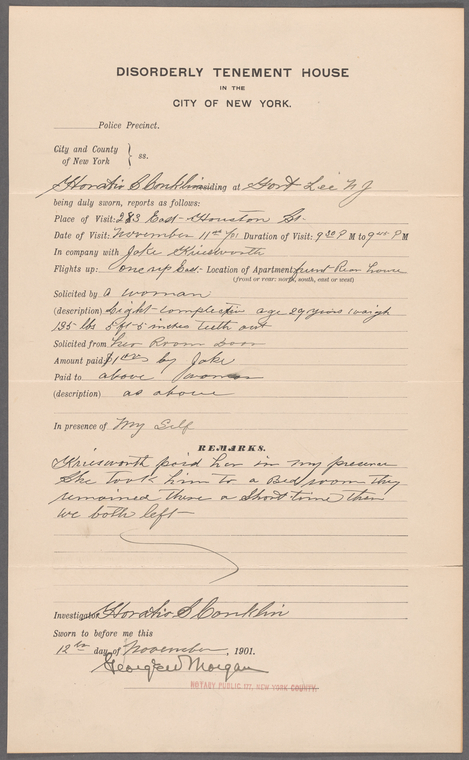 DISORDERLY TENEMENT HOUSE
IN THE
CITY OF NEW YORK.
Police Precinct.
City and County
of New York } ss.
Horatio S Conklin residing at Fort Lee N J
being duly sworn, reports as follows:
Place of Visit: 283 East Houston St.
Date of Visit: November 11th 1901 Duration of Visit: 9 30 P M to 9 45 P M
In company with Jake Kriesworth
Flights up: One up East Location of Apartment: front Rear house
(front or rear: north, south, east or west)
Solicited by a woman
(description) Light complection age 29 years weigh
135 lbs 5 ft 5 inches teeth out
Solicited from her Room Door
Amount paid: $1.00 by Jake
Paid to above woman
(description) as above
In presence of My Self
REMARKS.
Kriesworth paid her in my presence
She took him to a Bed room they
remained there a Short time then
we both left
Investigator Horatio S Conklin
Sworn to before me this
12th day of November, 1901.
George W Morgan
NOTARY PUBLIC, NEW YORK COUNTY.